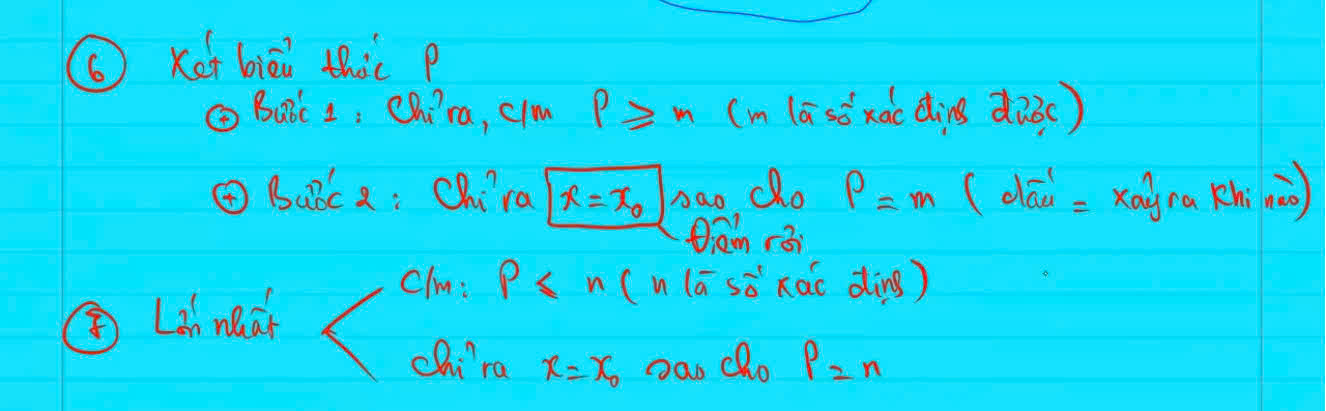 ⑥ Xét biểu thức P
⊕ Bước 1 : Chỉ ra, c/m P ≥ m (m là số xác định được)
⊕ Bước 2 : Chỉ ra x = x₀ sao cho P = m ( dấu = xảy ra khi nào)
Điểm rơi
c/m: P ≤ n ( n là số xác định)
⑦ Lớn nhất
chỉ ra x = x₀ sao cho P = n